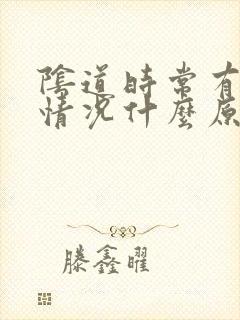 陰道時常有
情況什麼原
滕鑫曜